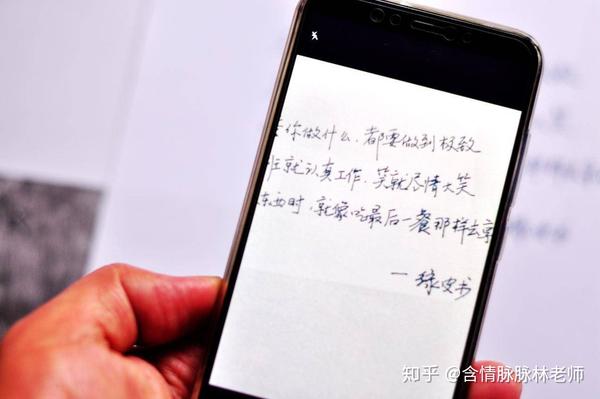 你做什么，都要做到极致
班就认真工作，笑就尽情大笑
东西时，就像吃最后一餐那样去享
一绿皮书
知乎 @含情脉脉林老师